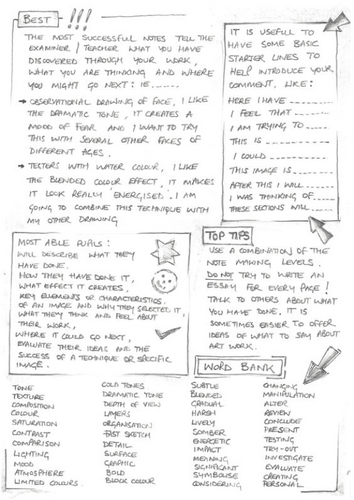 BEST - !!!
THE MOST SUCCESSFUL NOTES TELL THE
EXAMINER / TEACHER WHAT YOU HAVE
DISCOVERED THROUGH YOUR WORK,
WHAT YOU ARE THINKING AND WHERE
YOU MIGHT GO NEXT: IE ......
→ OBSERVATIONAL DRAWING OF FACE, I LIKE
THE DRAMATIC TONE, IT CREATES A
MOOD OF FEAR AND I WANT TO TRY
THIS WITH SEVERAL OTHER FACES OF
DIFFERENT AGES.
→ TESTERS WITH WATER COLOUR, I LIKE
THE BLENDED COLOUR EFFECT, IT MAKES
IT LOOK REALLY ENERGISED. I AM
GOING TO COMBINE THIS TECHNIQUE WITH
MY OTHER DRAWING
IT IS USEFULL TO
HAVE SOME BASIC
STARTER LINES TO
HELP INTRODUCE YOUR
COMMENT, LIKE:
HERE I HAVE ------
I FEEL THAT ------
I AM TRYING TO ------
THIS IS ------
I COULD ------
THIS IMAGE IS ------
AFTER THIS I WILL -----
I WAS THINKING OF ----
THESE SECTIONS WILL ----
MOST ABLE PUPILS:
WILL DESCRIBE WHAT THEY
HAVE DONE,
HOW THEY HAVE DONE IT,
WHAT EFFECT IT CREATES,
KEY ELEMENTS OR CHARACTERISTICS,
OF AN IMAGE AND WHY THEY SELECTED IT,
WHAT THEY THINK AND FEEL ABOUT
THEIR WORK,
WHERE IT COULD GO NEXT,
EVALUATE THEIR IDEAS AND THE
SUCCESS OF A TECHNIQUE OR SPECIFIC
IMAGE.
TOP TIPS
USE A COMBINATION OF THE
NOTE MAKING LEVELS.
DO NOT TRY TO WRITE AN
ESSAY FOR EVERY PAGE!
TALK TO OTHERS ABOUT WHAT
YOU HAVE DONE, IT IS
SOMETIMES EASIER TO OFFER
IDEAS OF WHAT TO SAY ABOUT
ART WORK.
WORD BANK
TONE
TEXTURE
COMPOSITION
COLOUR
SATURATION
CONTRAST
COMPARISON
LIGHTING
MOOD
ATMOSPHERE
LIMITED COLOURS
COLD TONES
DRAMATIC TONE
DEPTH OF VIEW
LAYERS
ORGANISATION
FAST SKETCH
DETAIL
SURFACE
GRAPHIC
BOLD
BLOCK COLOUR
SUBTLE
BLENDED
GRADUAL
HARSH
LIVELY
SOMBER
ENERGETIC
IMPACT
MEANING
SIGNIFICANT
SYMBOLISE
CONSIDERING
CHANGING
MANIPULATION
ALTER
REVIEW
CONCLUDE
PRESENT
TESTING
TRY-OUT
INVESTIGATE
EVALUATE
CREATING
PERSONAL